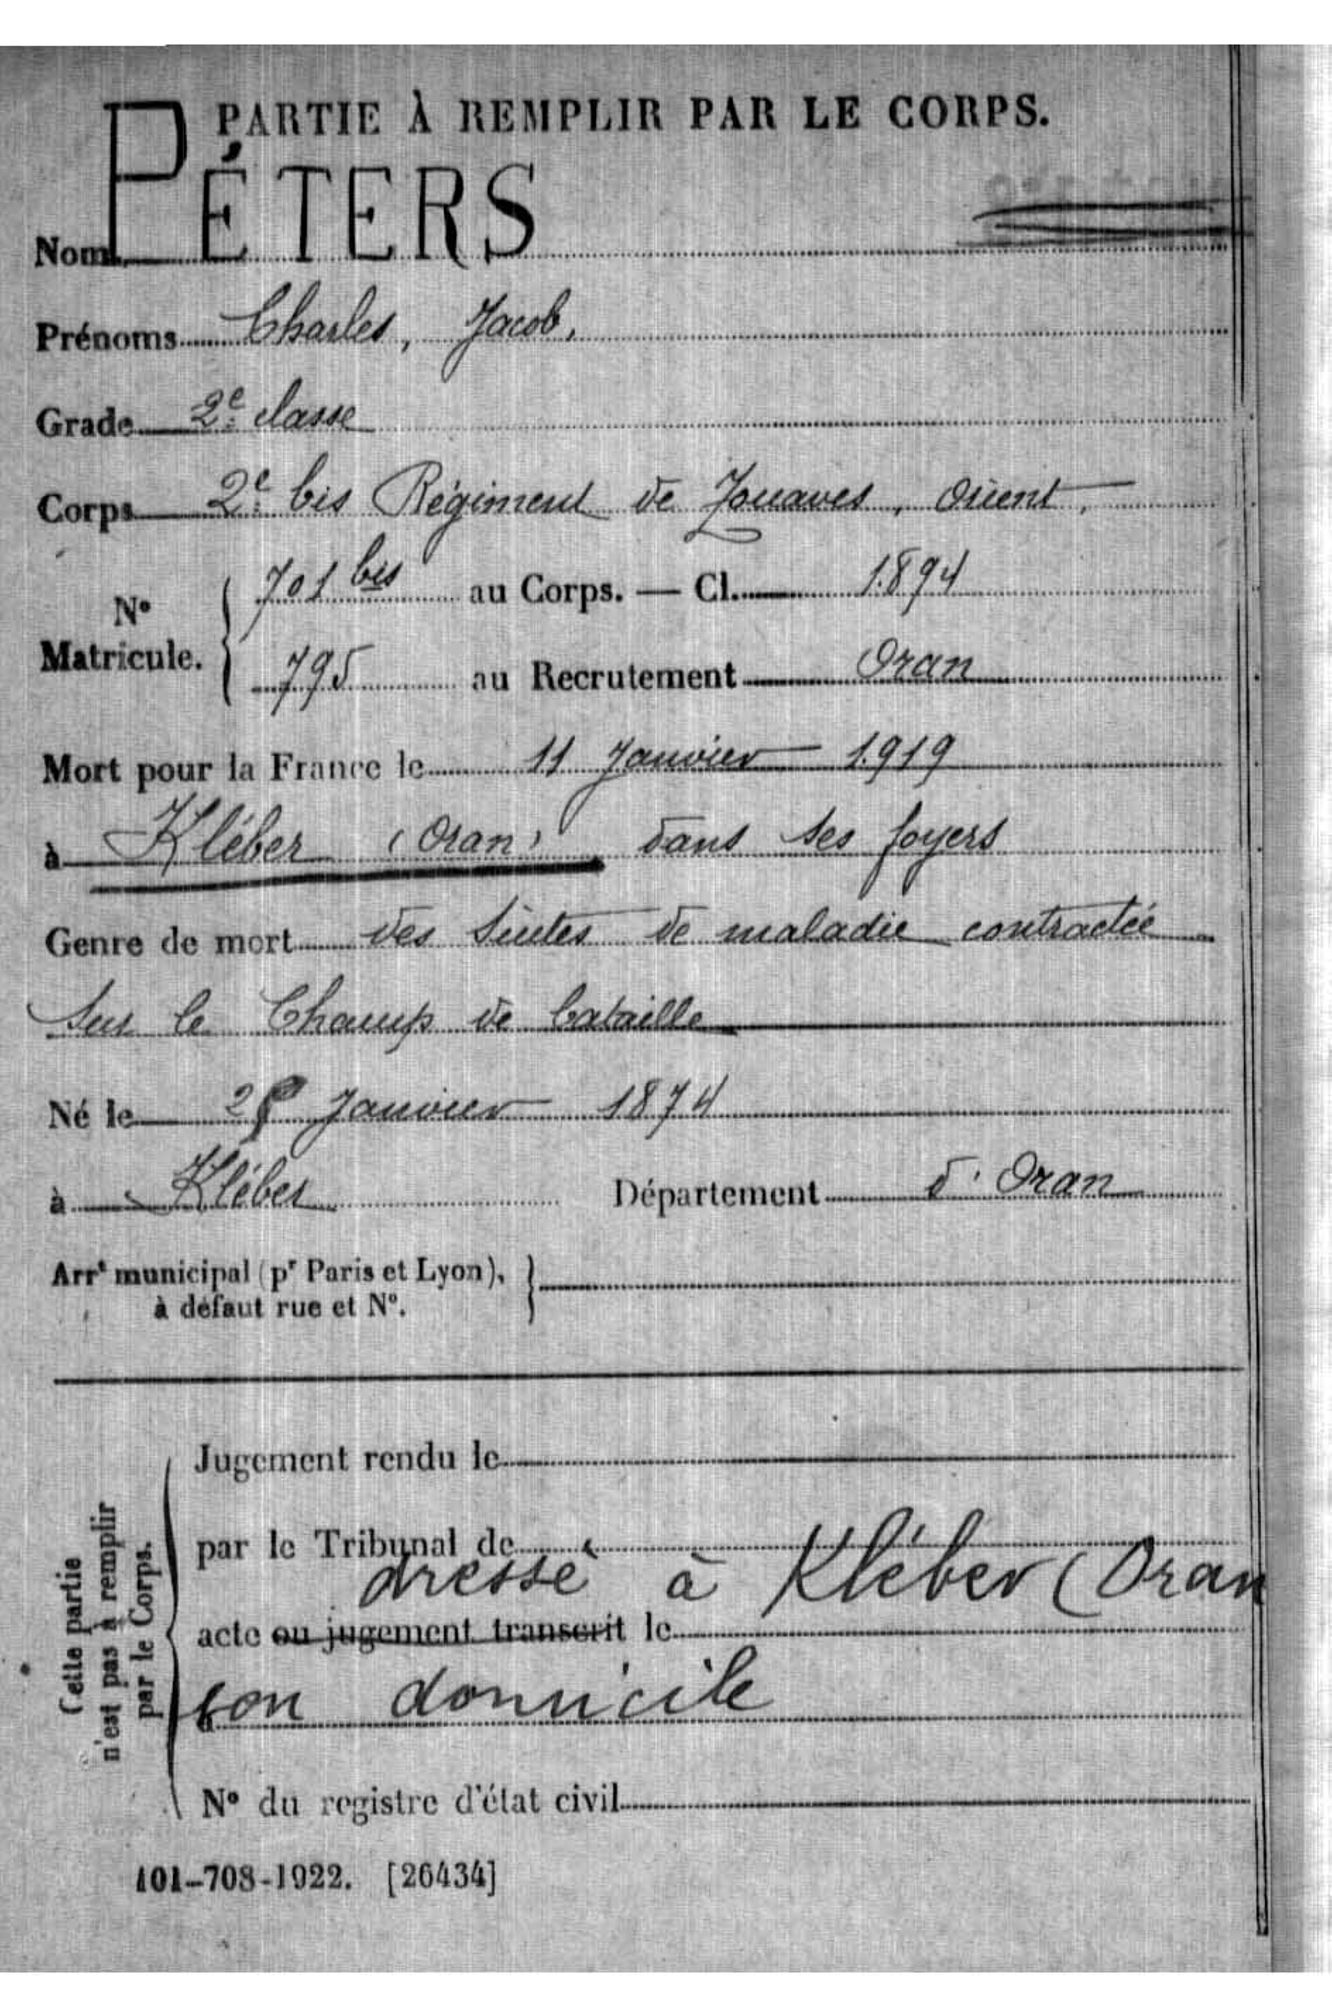 PARTIE À REMPLIR PAR LE CORPS.
Nom PÉTERS
Prénoms Charles, Jacob,
Grade 2e classe
Corps 2e bis Régiment de Zouaves, Orient,
N° Matricule. 701 bis au Corps. — Cl. 1894
795 au Recrutement Oran
Mort pour la France le 11 Janvier 1919
à Kléber (Oran) dans ses foyers
Genre de mort des suites de maladie contractée
sur le Champ de bataille
Né le Janvier 1874
à Kléber Département d'Oran
Arrt municipal (pr Paris et Lyon),
à défaut rue et N°.
Cette partie
n'est pas à remplir
par le Corps.
Jugement rendu le
par le Tribunal de
dressé à Kléber (Oran
acte ou jugement transcrit le
son domicile
N° du registre d'état civil
101-708-1922. [26434]